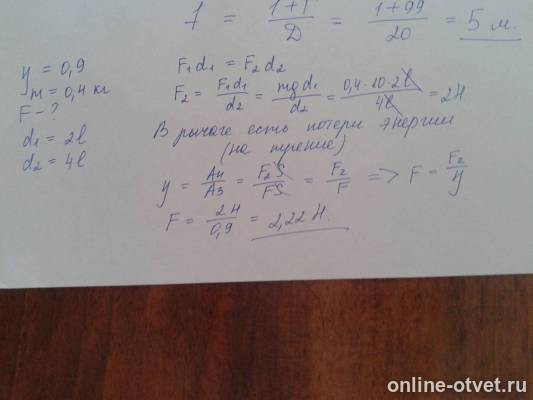 f = 1+Г / D = 1+99 / 20 = 5 м.
y = 0,9
m = 0,4 кг
F - ?
d1 = 2l
d2 = 4l
F1d1 = F2d2
F2 = F1d1 / d2 = mgd1 / d2 = 0,4·10·2l / 4l = 2H
В рычаге есть потери энергии
(на трение)
y = Aп / Aз = F2S / FS = F2 / F => F = F2 / y
F = 2H / 0,9 = 2,22 H.
online-otvet.ru